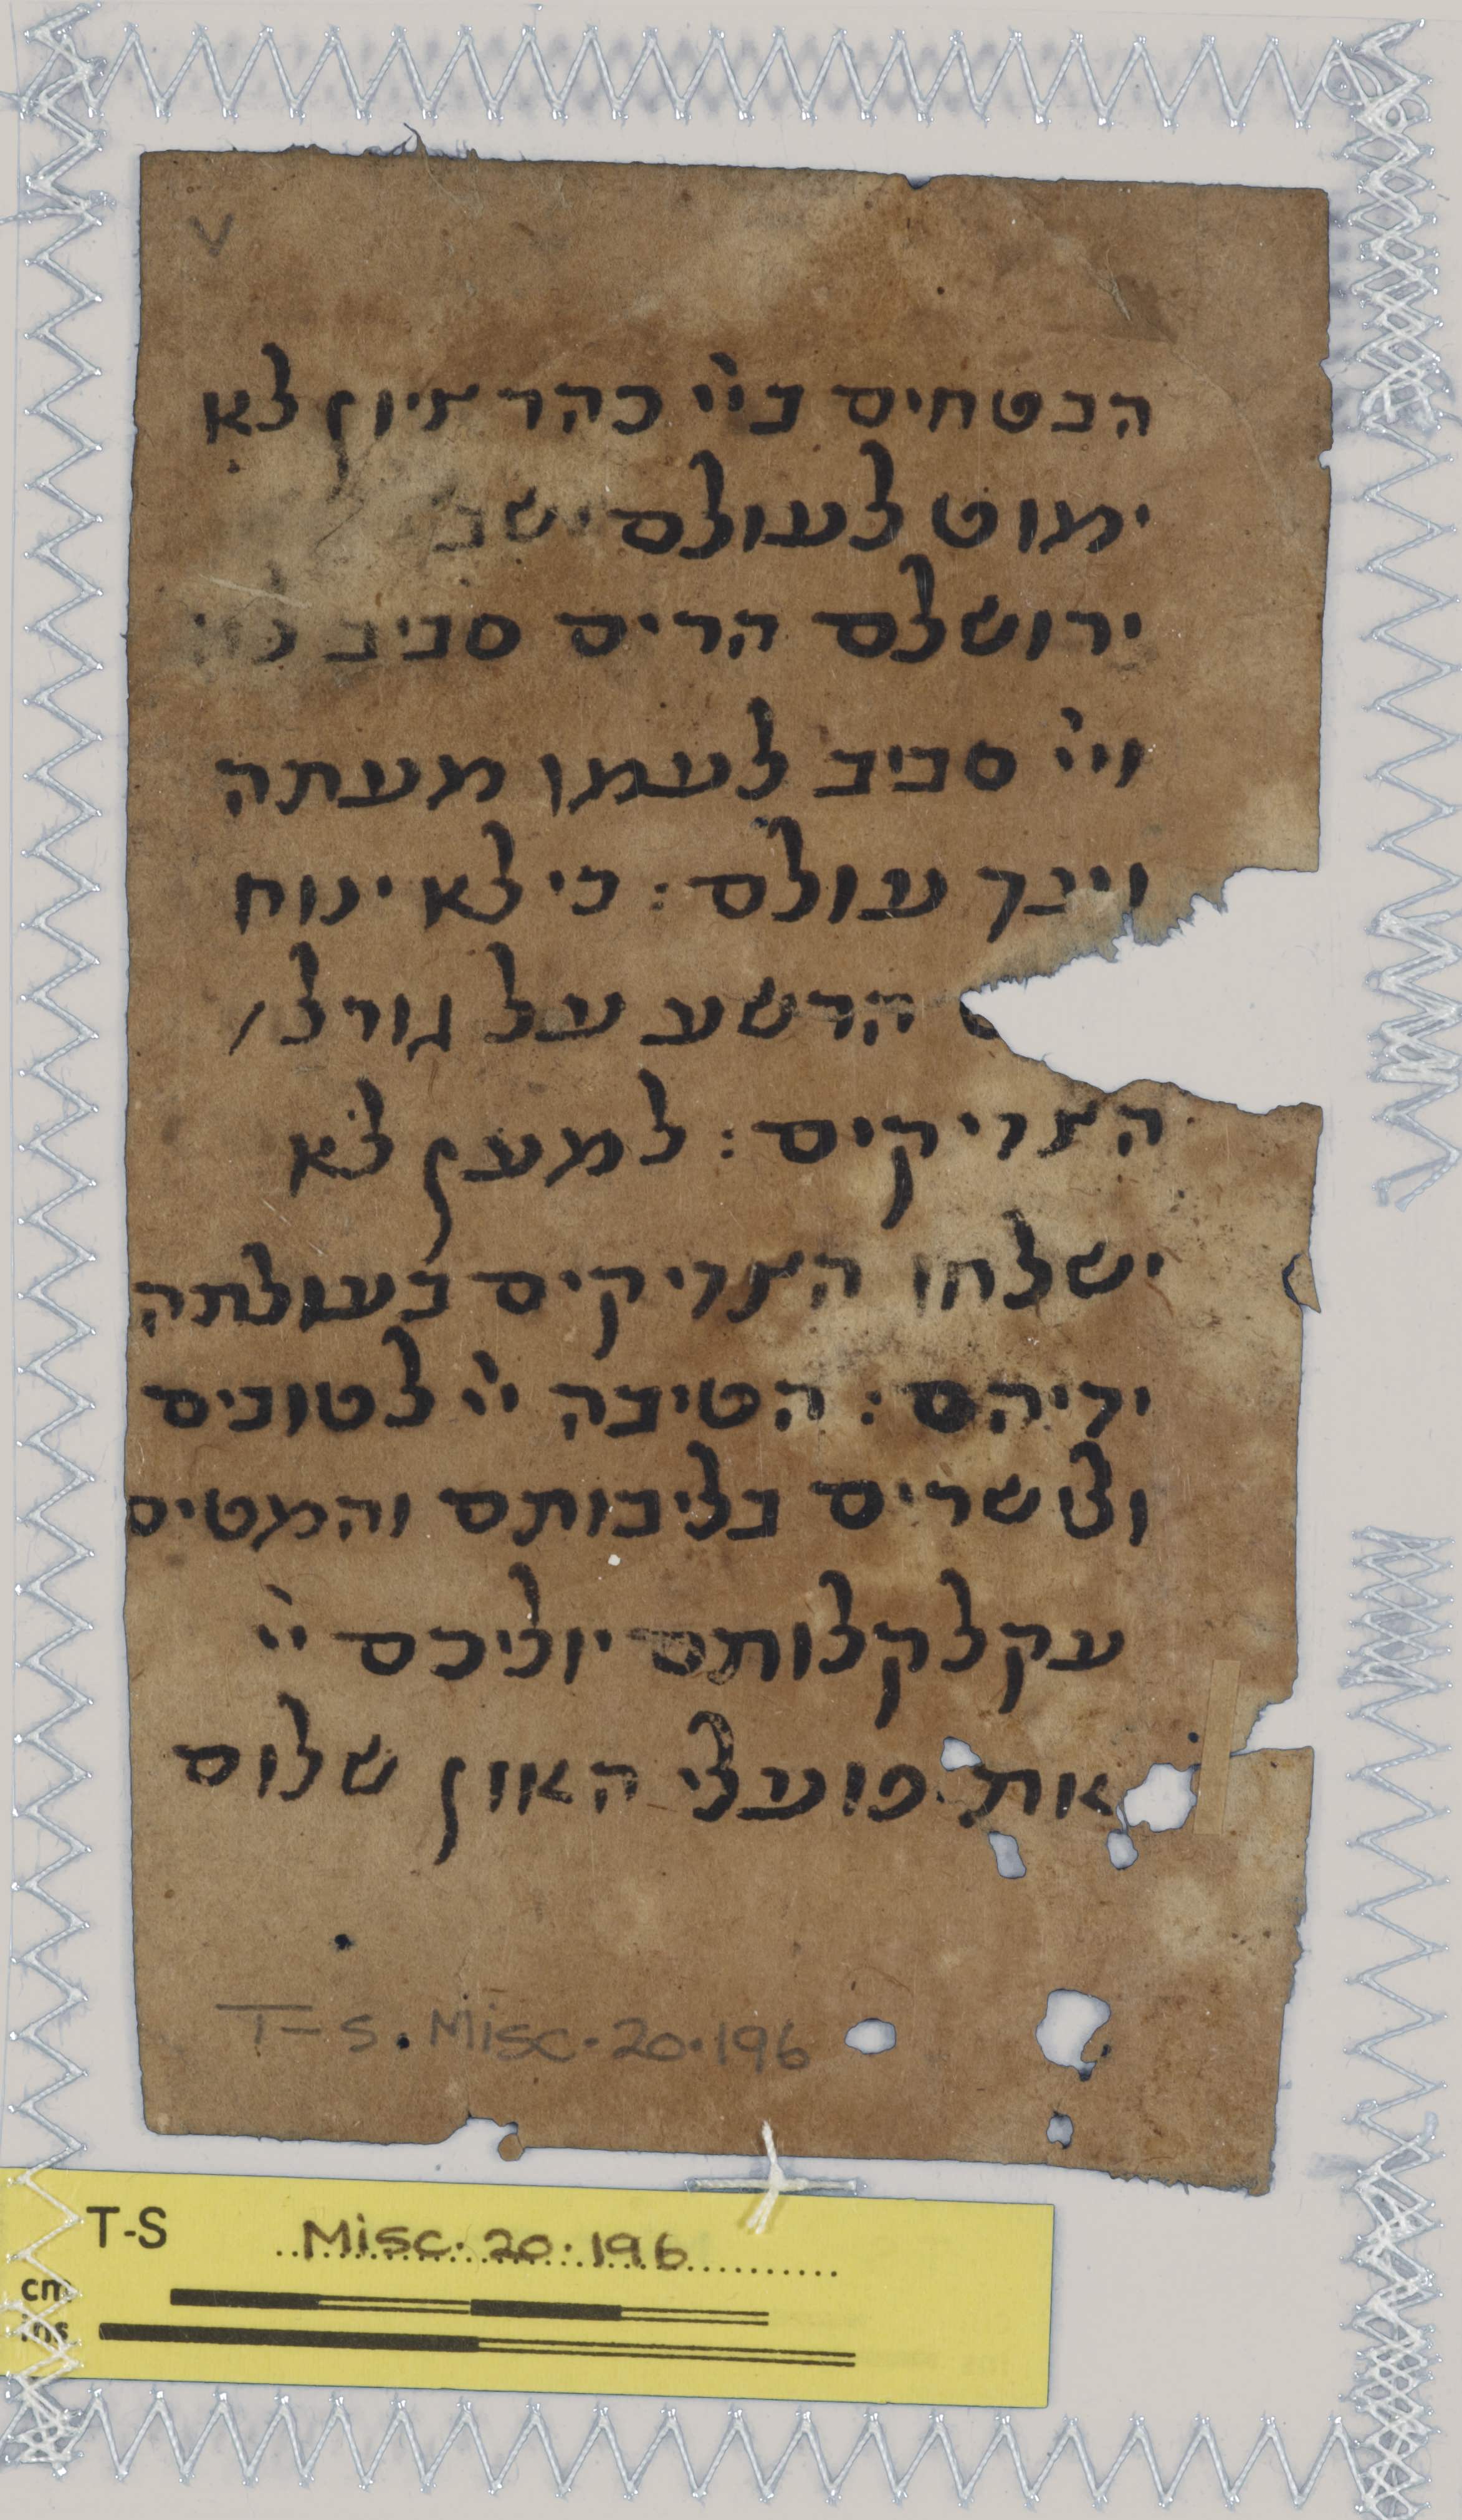 הבטחים ביי כהר ציון לא
ימוט לעולם ישב
ירושלם הרים סביב
ויי סביב לעמו מעתה
ועד עולם : כי לא ינוח
הרשע על גורל
הצדיקים : למען לא
ישלחו הצדיקים בעולתה
ידיהם : הטיבה יי לטובים
ולישרים בליבותם והמטים
עקלקלותם יוליכם יי
את פועלי האון שלום
T-S. Misc. 20. 196
T-S Misc. 20. 196
cm
ins